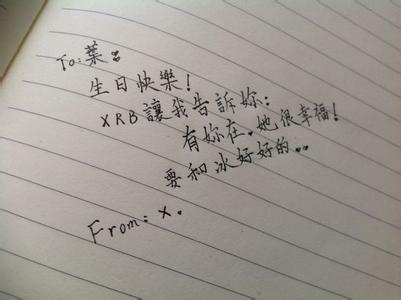 To:葉:
生日快樂!
XRB讓我告訴妳:
有妳在.她很幸福!
要和冰好好的...
From:x.